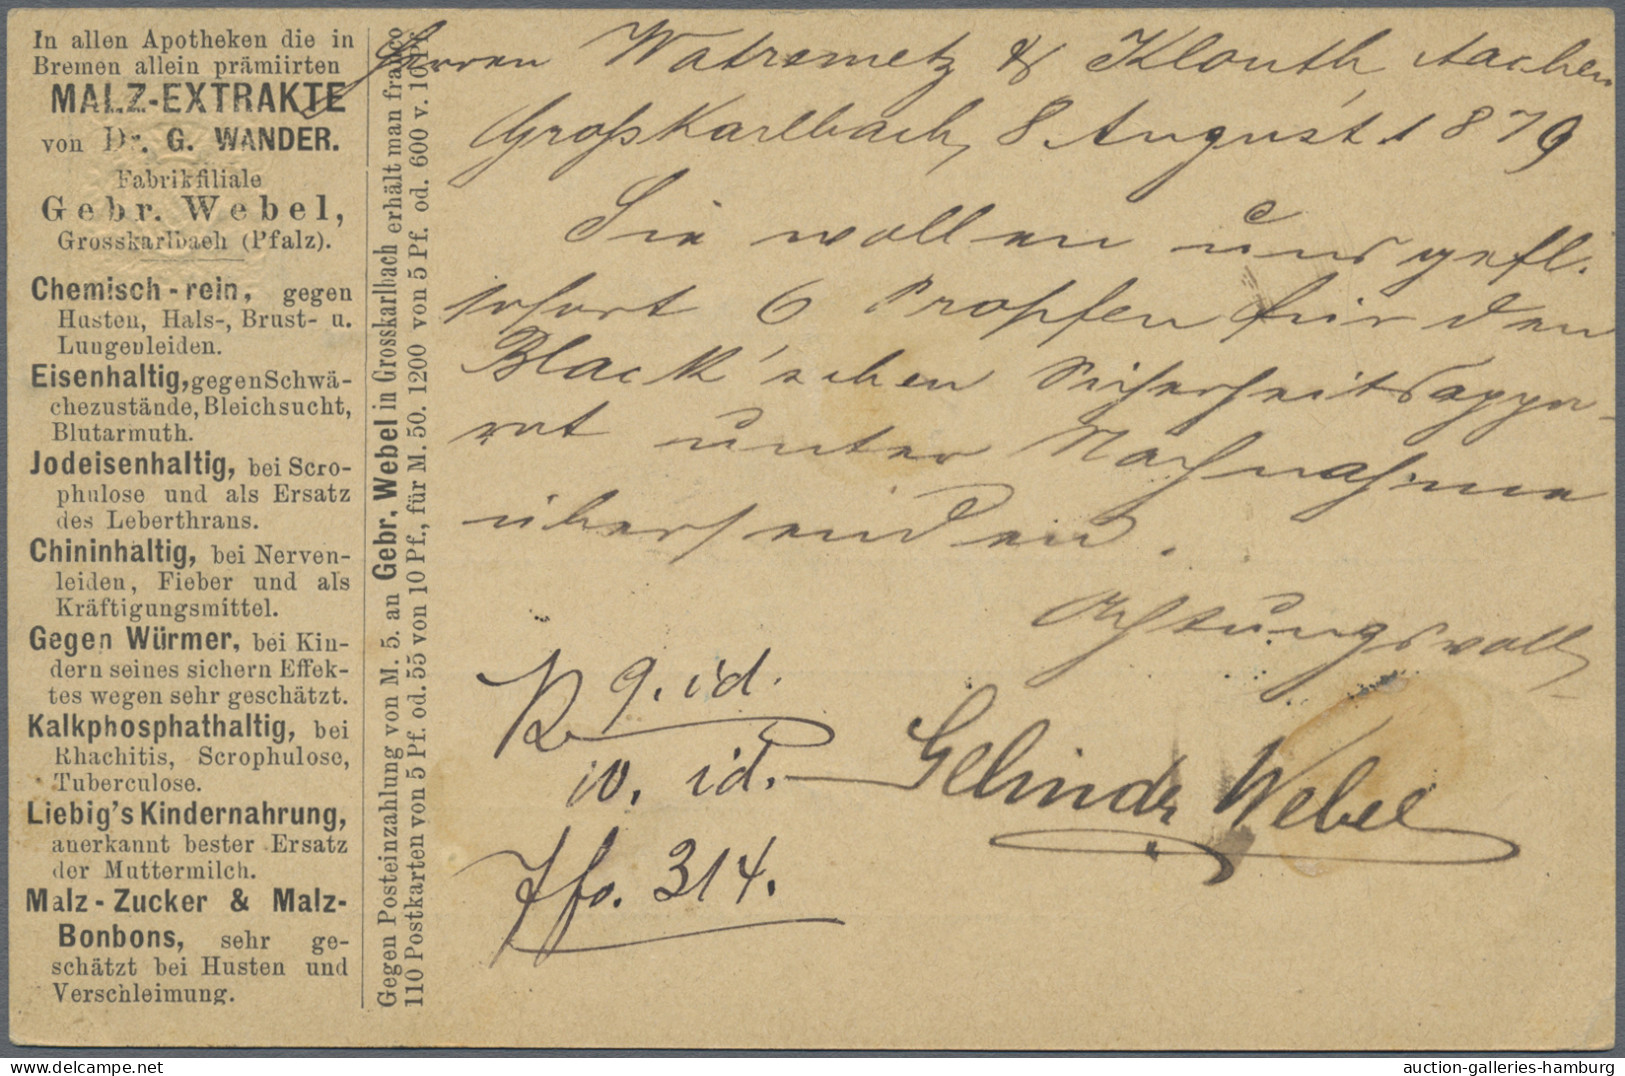 In allen Apotheken die in
Bremen allein prämiirten
MALZ-EXTRAKTE
von Dr. G. WANDER.
Fabrikfiliale
Gebr. Webel,
Grosskarlbach (Pfalz).
Chemisch-rein, gegen
Husten, Hals-, Brust- u.
Lungenleiden.
Eisenhaltig, gegen Schwä-
chezustände, Bleichsucht,
Blutarmuth.
Jodeisenhaltig, bei Scro-
phulose und als Ersatz
des Leberthrans.
Chininhaltig, bei Nerven-
leiden, Fieber und als
Kräftigungsmittel.
Gegen Würmer, bei Kin-
dern seines sichern Effek-
tes wegen sehr geschätzt.
Kalkphosphathaltig, bei
Rhachitis, Scrophulose,
Tuberculose.
Liebig's Kindernahrung,
anerkannt bester Ersatz
der Muttermilch.
Malz-Zucker & Malz-
Bonbons, sehr ge-
schätzt bei Husten und
Verschleimung.
Gegen Posteinzahlung von M. 5. an Gebr. Webel in Grosskarlbach erhält man franco
110 Postkarten von 5 Pf. od. 55 von 10 Pf., für M. 50. 1200 von 5 Pf. od. 600 v. 10 Pf.
Herren Watremetz & Klouth, Aachen
Großkarlbach, 8. August 1879
Sie wollen uns gefl.
sofort 6 Propfen für den
Black'schen Sicherheitsappa-
rat unter Nachnahme
übersenden.
Achtungsvoll
Gebrüder Webel
9. id.
10. id.
fo. 314.
auction-galleries-hamburg